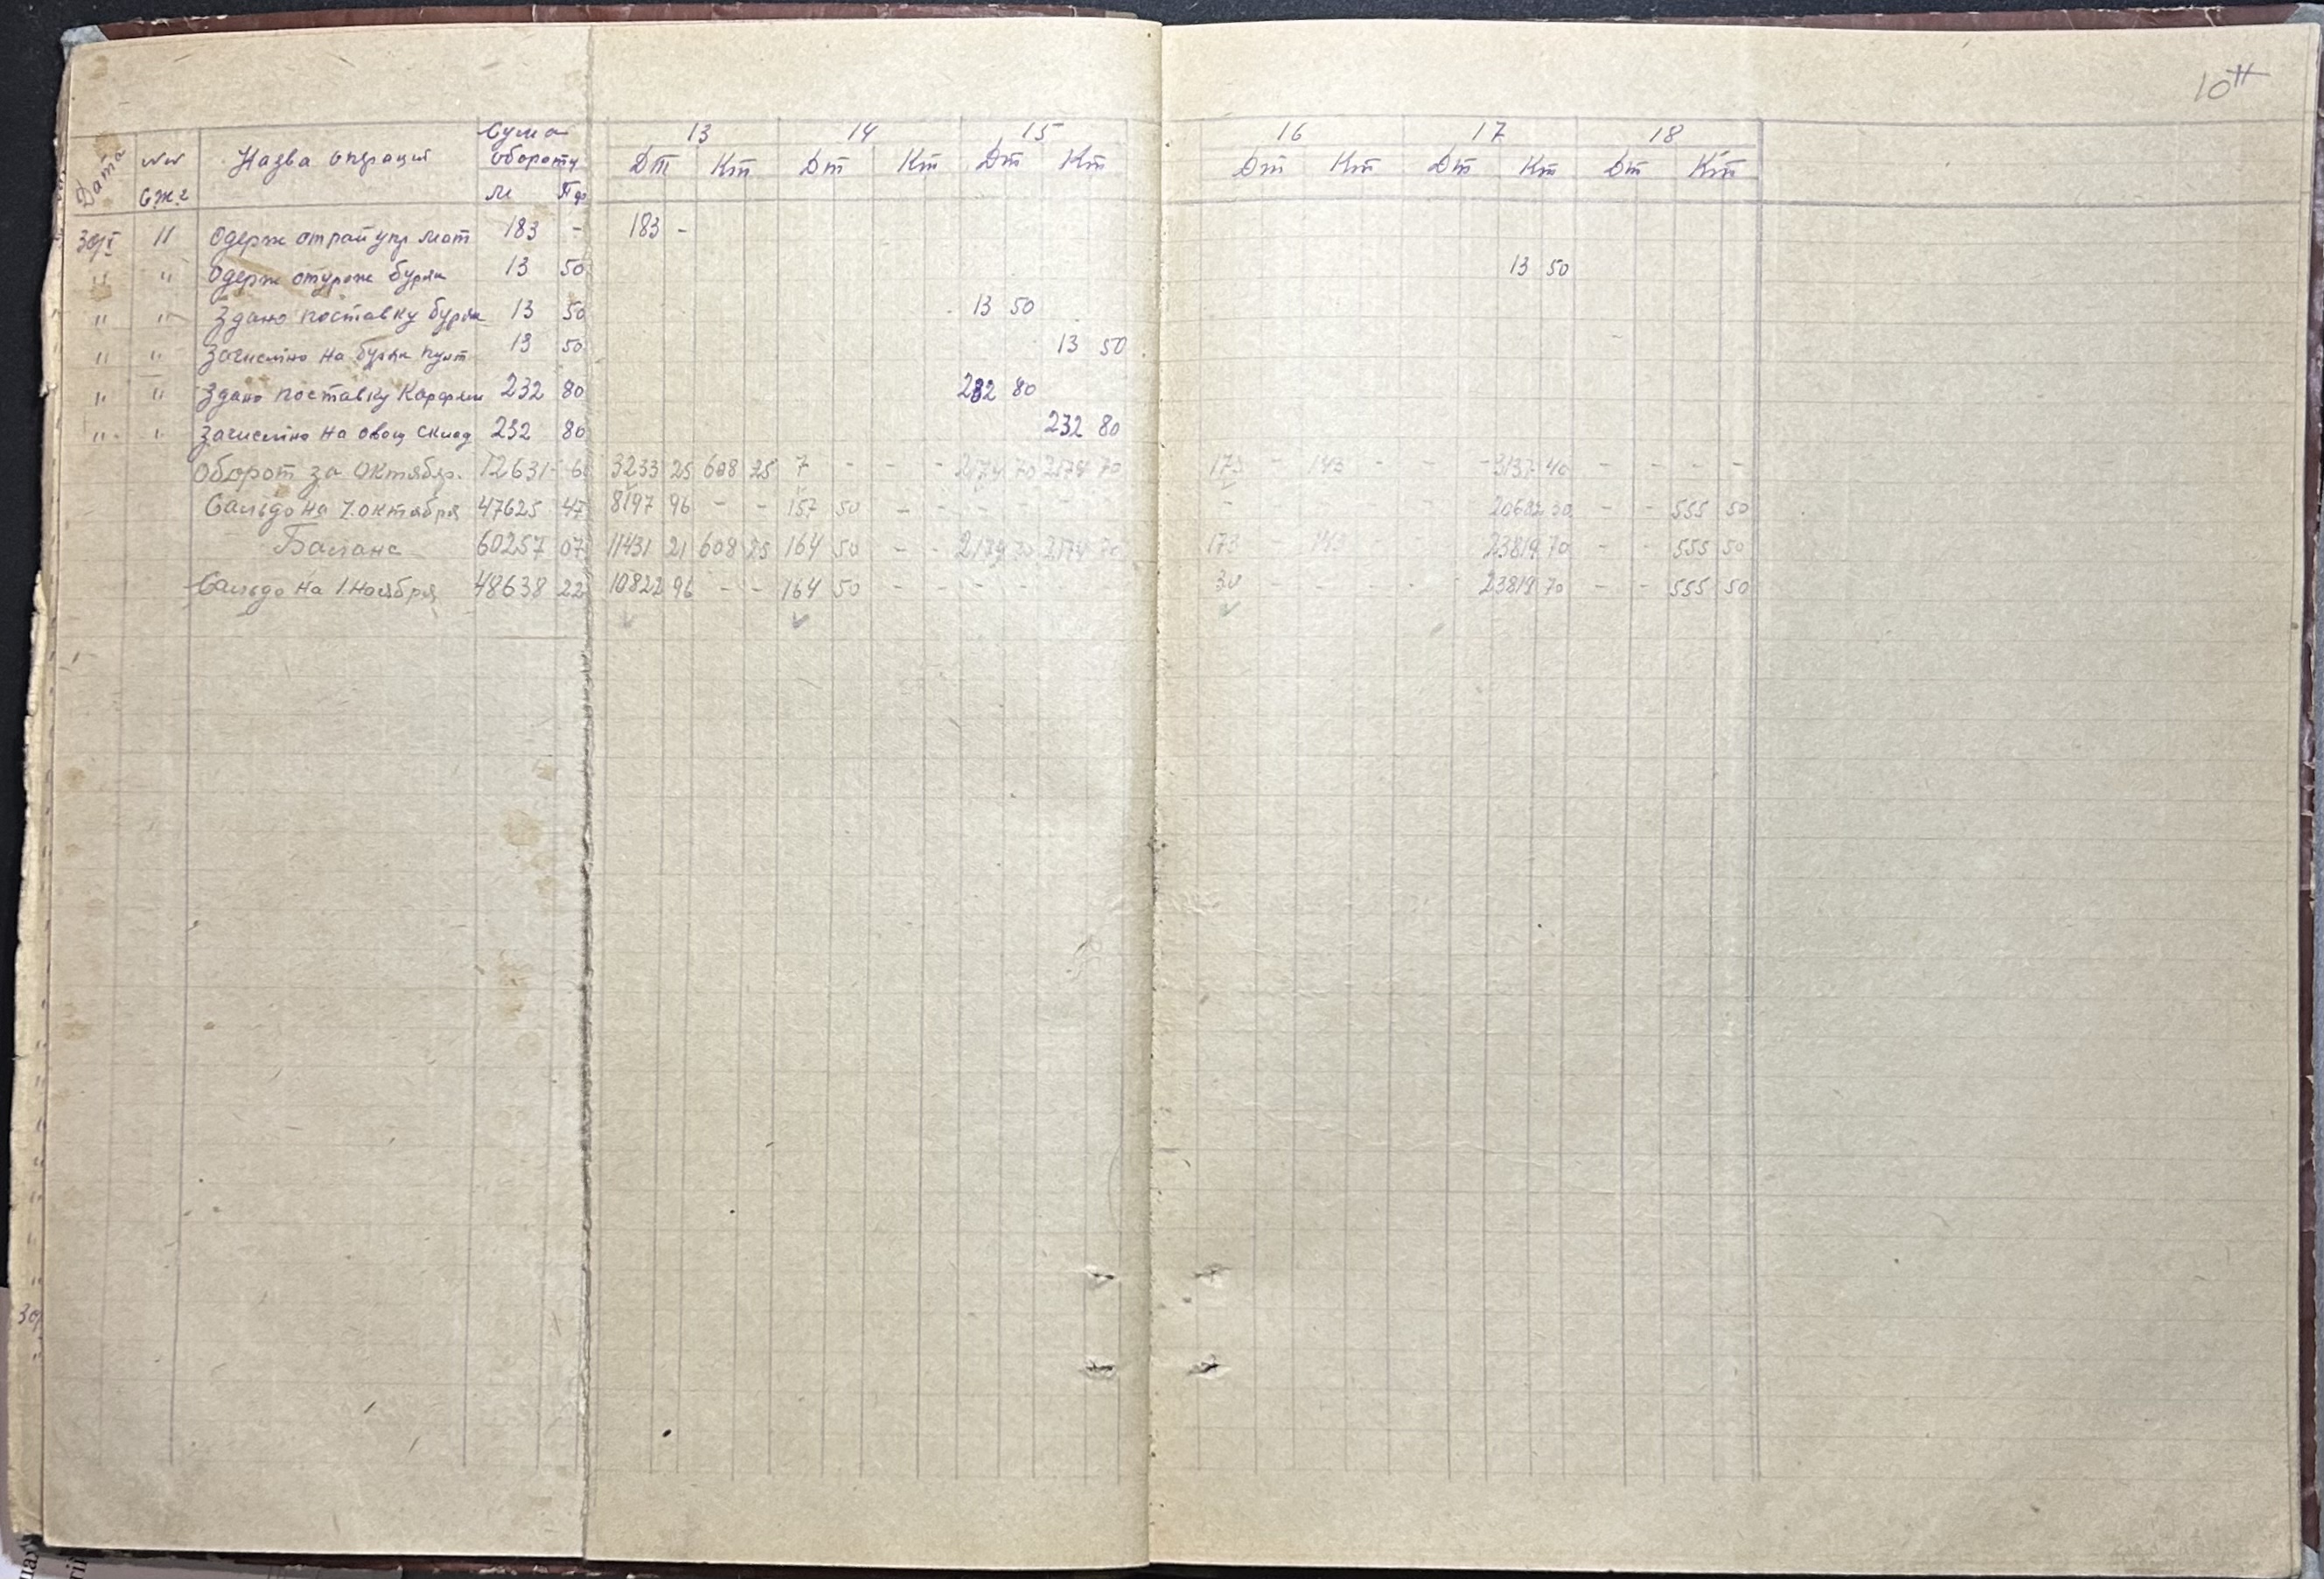 10
Сума 13 14 15 16 17 18
Дата №№ Назва операций обороту Дт Кт Дт Кт Дт Кт Дт Кт Дт Кт Дт Кт
М Пф
30/X 11 Одерж отрай упр мот 183 - 183 -
" " Одерж буряк 13 50 13 50
" " Здано поставку буряк 13 50 13 50
" " Зачислено на буряк пункт 13 50 13 50
" " Здано поставку Картопли 232 80 232 80
" " Зачислено на овощ склад 232 80 232 80
Оборот за Октябр. 12631 60 3233 25 608 25 7 - - - 2174 70 2174 70 173 - 143 - - - 3137 40 - - - -
Сальдо на 1.октября 47625 47 8197 96 - - 157 50 - - - - - - 20682 30 - - 555 50
Баланс 60257 07 11431 21 608 25 164 50 - - 2174 70 2174 70 173 - 143 - 23819 70 - - 555 50
Сальдо на 1.Ноября 48638 22 10822 96 - - 164 50 - - - - 30 - - - - 23819 70 - - 555 50